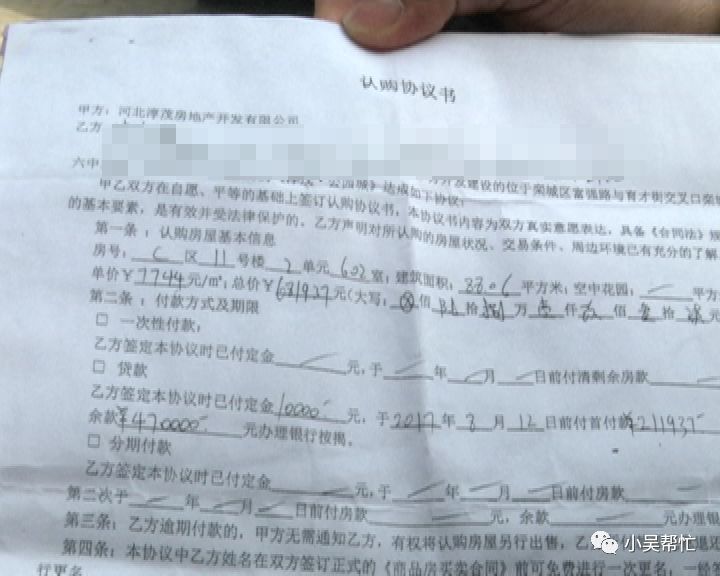 认购协议书
甲方：河北淳茂房地产开发有限公司
乙方
六中
甲乙双方在自愿、平等的基础上签订认购协议书，本协议书内容为双方真实意愿表达，具备《合同法》规
的基本要素，是有效并受法律保护的。乙方声明对所认购的房屋状况、交易条件、周边环境已有充分的了解
第一条：认购房屋基本信息
房号：C区11号楼2单元602室；建筑面积：88.06平方米；空中花园：／平方
单价￥7744元/㎡；总价￥681937元（大写：佰陆拾捌万壹仟玖佰叁拾柒元
第二条：付款方式及期限
□ 一次性付款：
乙方签定本协议时已付定金／元，于／年／月／日前付清剩余房款／
□ 贷款
乙方签定本协议时已付定金10000元，于2017年8月12日前付首付款￥211937
余款￥470000元办理银行按揭。
□ 分期付款
乙方签定本协议时已付定金／元，于／年／月／日前付房款
第二次于／年／月／日前付房款／元，余款／元办理银
第三条：乙方逾期付款的，甲方无需通知乙方，有权将认购房屋另行出售，乙
第四条：本协议中乙方姓名在双方签订正式的《商品房买卖合同》前可免费进行一次更名，一经签
行更名
小吴帮忙